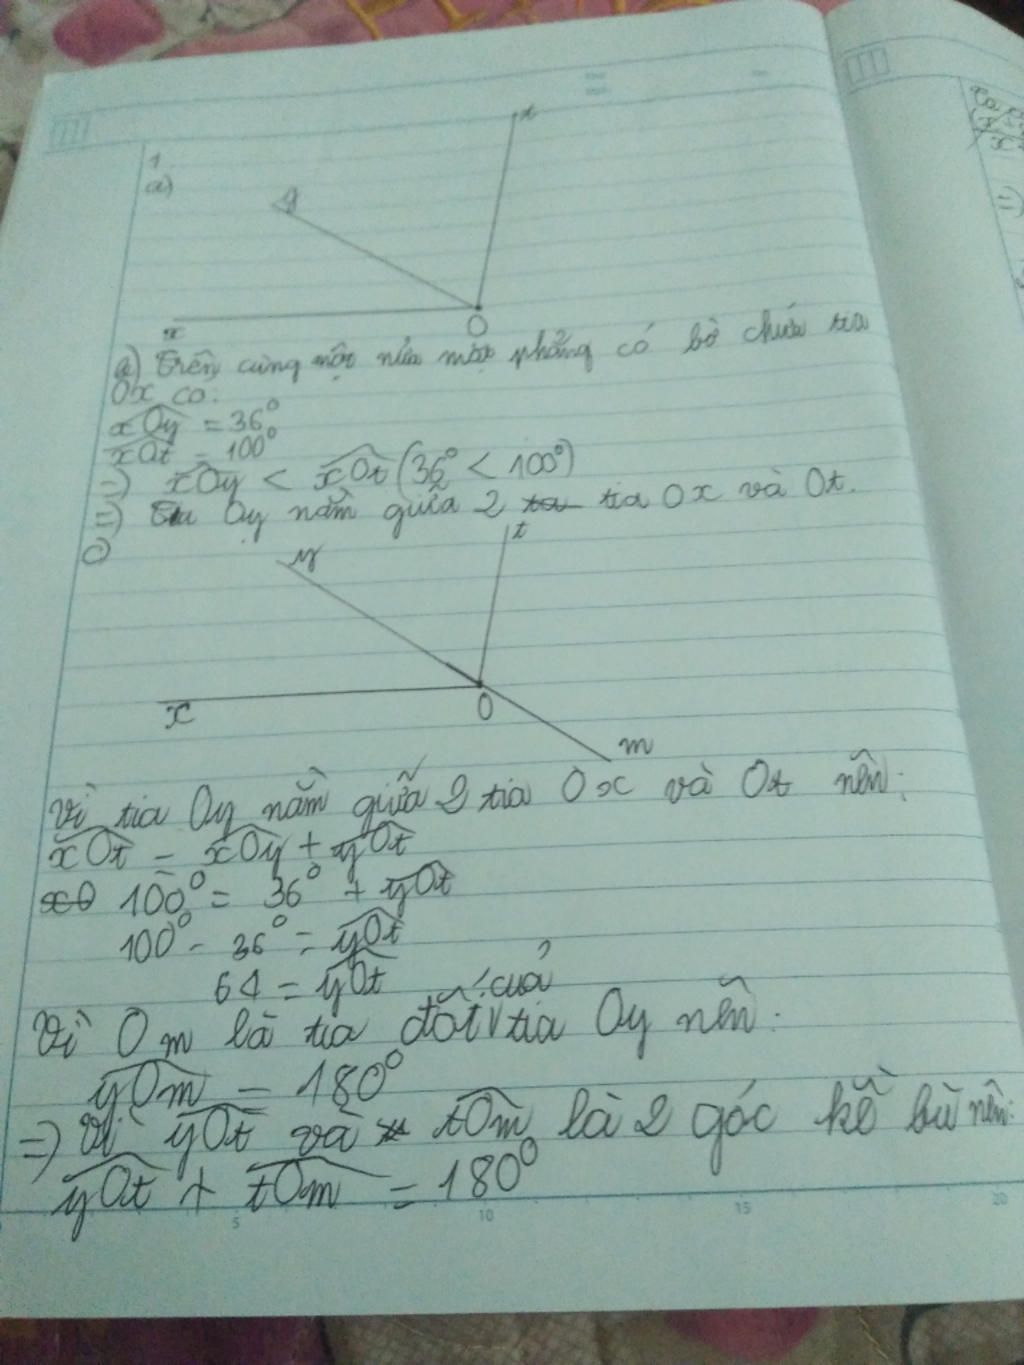 1.
a)
t
y
x
O
a) Trên cùng một nửa mặt phẳng có bờ chứa tia
Ox có:
xOy = 36°
xOt = 100°
=) xOy < xOt (36° < 100°)
=) Tia Oy nằm giữa 2 tia Ox và Ot.
t
y
x
O
m
Vì tia Oy nằm giữa 2 tia Ox và Ot nên:
xOt = xOy + yOt
100° = 36° + yOt
100° - 36° = yOt
64 = yOt
Vì Om là tia đối của tia Oy nên:
yOm = 180°
=) Vì yOt và tOm là 2 góc kề bù nên:
yOt + tOm = 180°
5 10 15 20